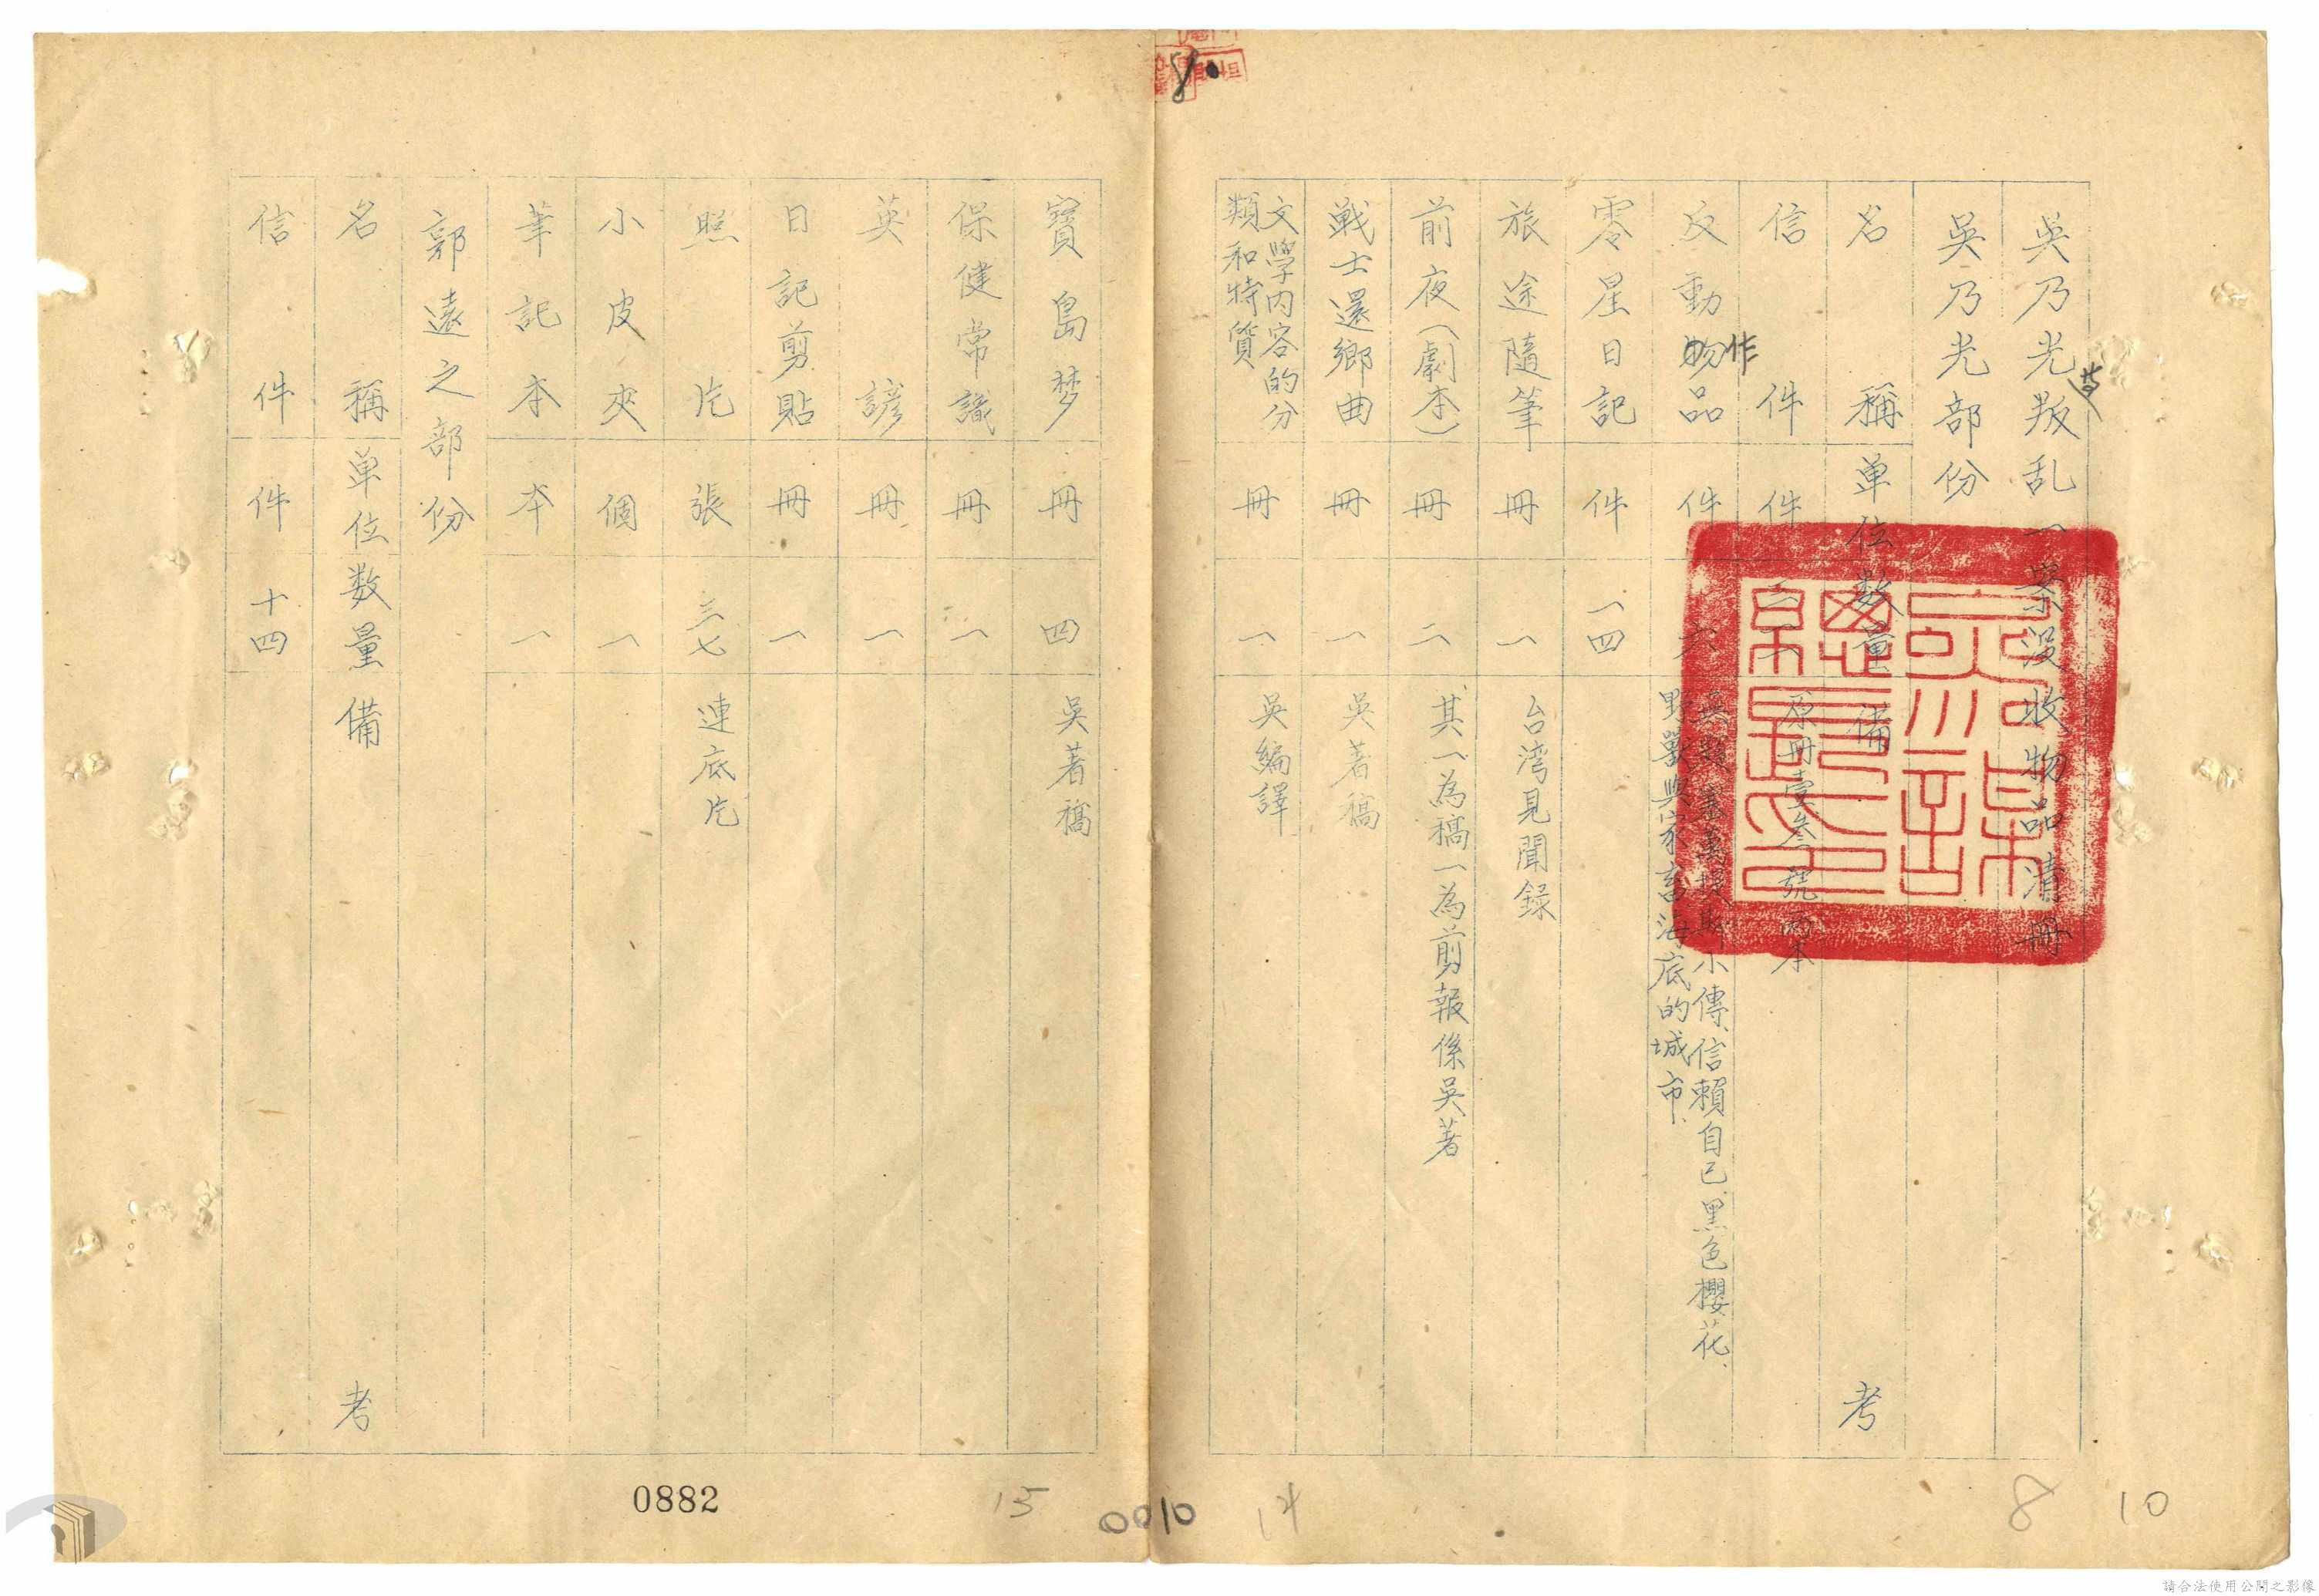 吳乃光等叛乱一案沒收物品清冊
吳乃光部份
名稱 单位 数量 備考
信件 件 二一 原冊壹叁號兩本
反動作品 件 六 小傳、信賴自己、黑色櫻花、
野獸與家畜、海底的城市、
零星日記 件 一四
旅途隨筆 冊 一 台湾見聞録
前夜(劇本) 冊 二 其一為稿一為剪報係吳著
戦士還鄉曲 冊 一 吳著稿
文學内容的分
類和特质 冊 一 吳編譯
寶島梦 冊 四 吳著稿
保健常識 冊 一
英諺 冊 一
日記剪貼 冊 一
照片 張 三七 連底片
小皮夾 個 一
筆記本 本 一
郭遠之部份
名稱 单位 数量 備考
信件 件 十四
0882
15
0010
14
8
10
請合法使用公開之影像